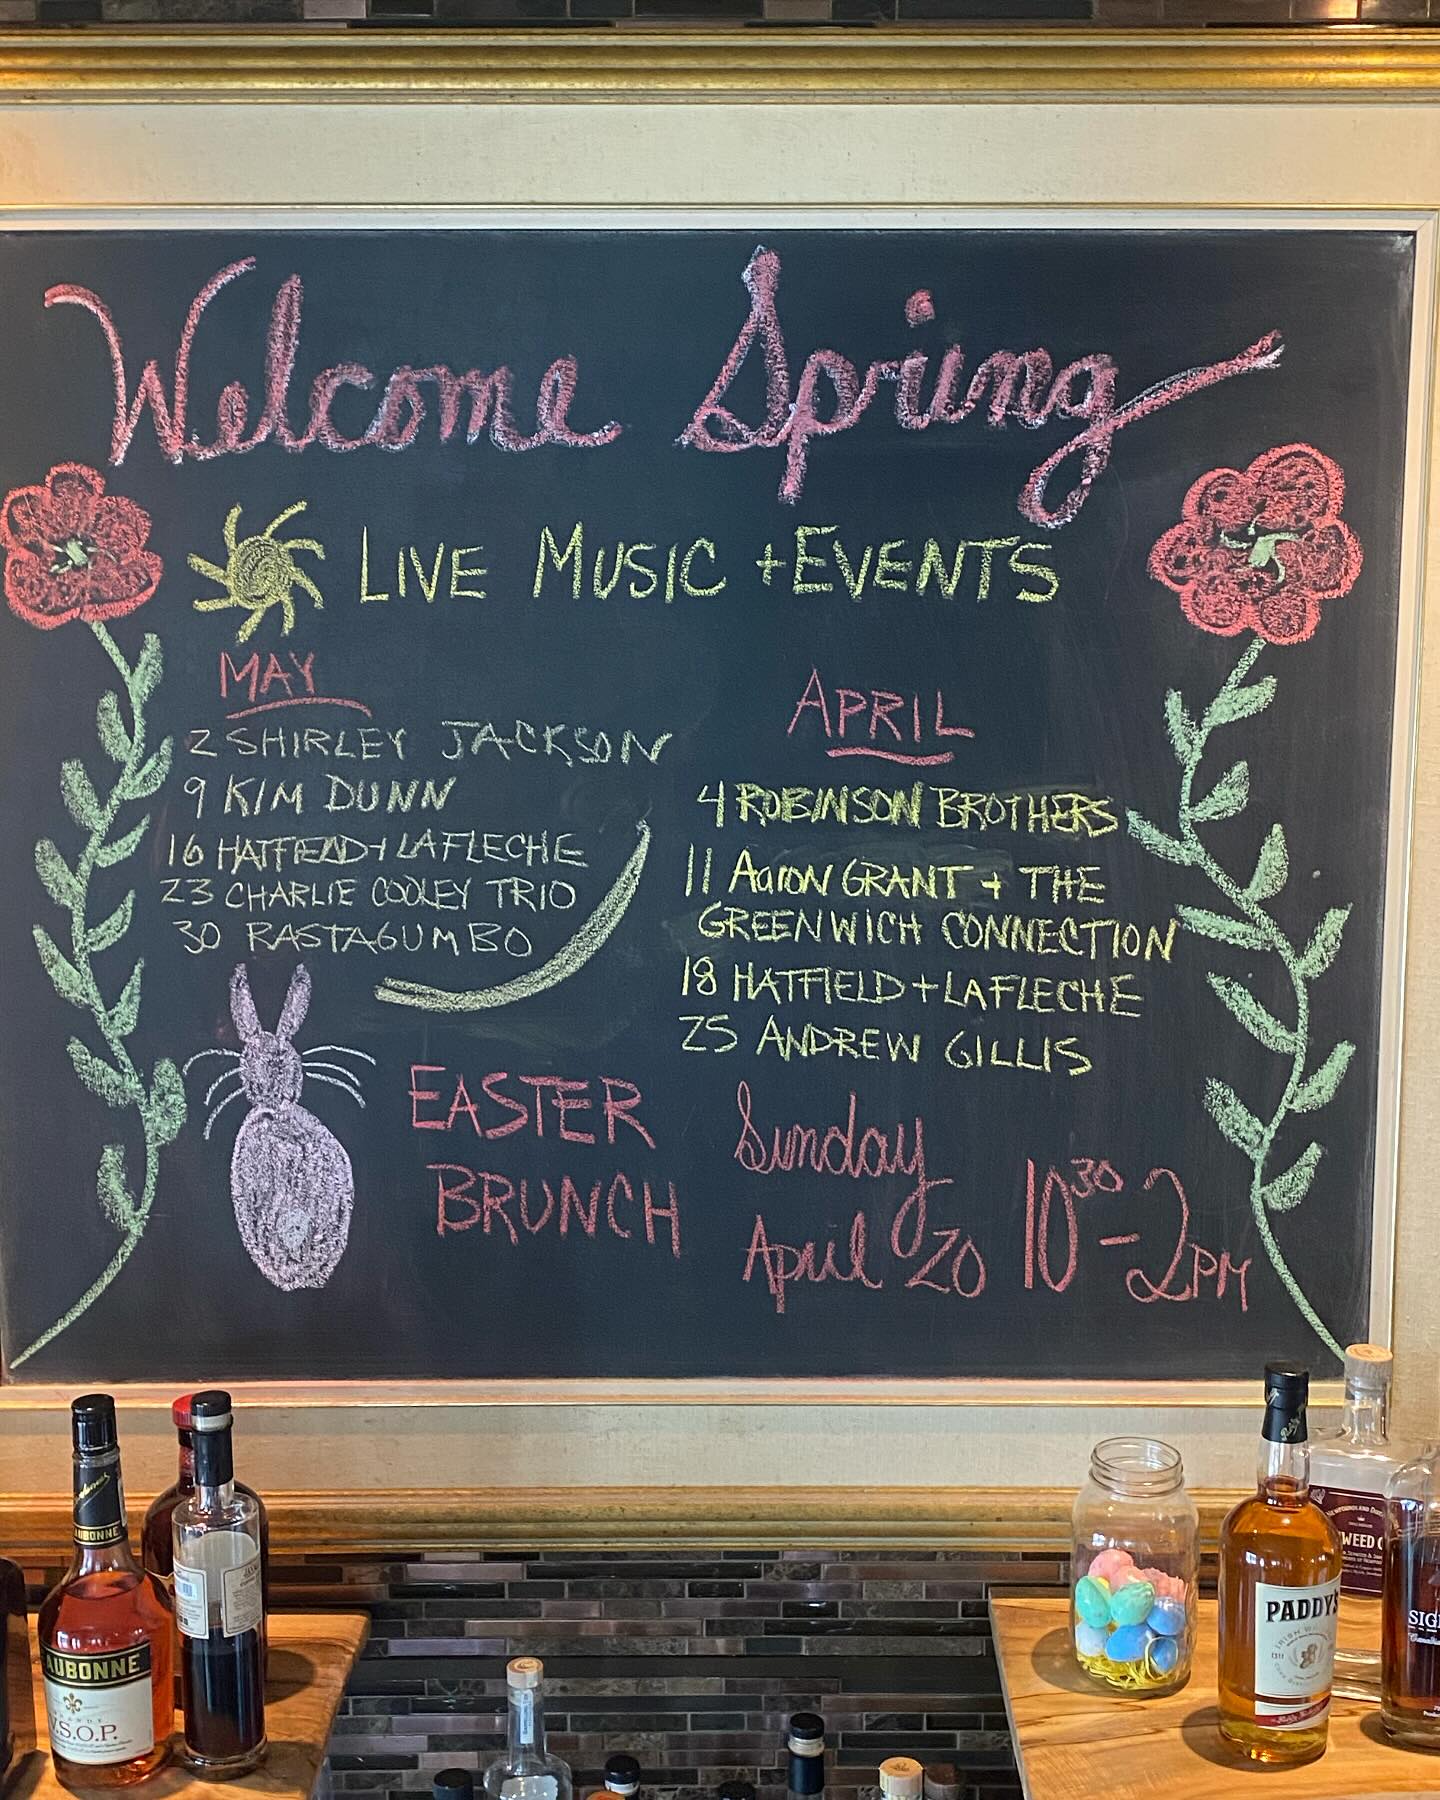 Welcome Spring
LIVE MUSIC + EVENTS
MAY
2 SHIRLEY JACKSON
9 KIM DUNN
16 HATFIELD + LAFLECHE
23 CHARLIE COOLEY TRIO
30 RASTAGUMBO
APRIL
4 ROBINSON BROTHERS
11 AaroN GRANT + THE
GREENWICH CONNECTION
18 HATFIELD + LAFLECHE
25 ANDREW GILLIS
EASTER
BRUNCH
Sunday
April 20
10³⁰ - 2PM
AUBONNE
AUBONNE
V.S.O.P.
PADDY'S
IRISH
WEED
SIG